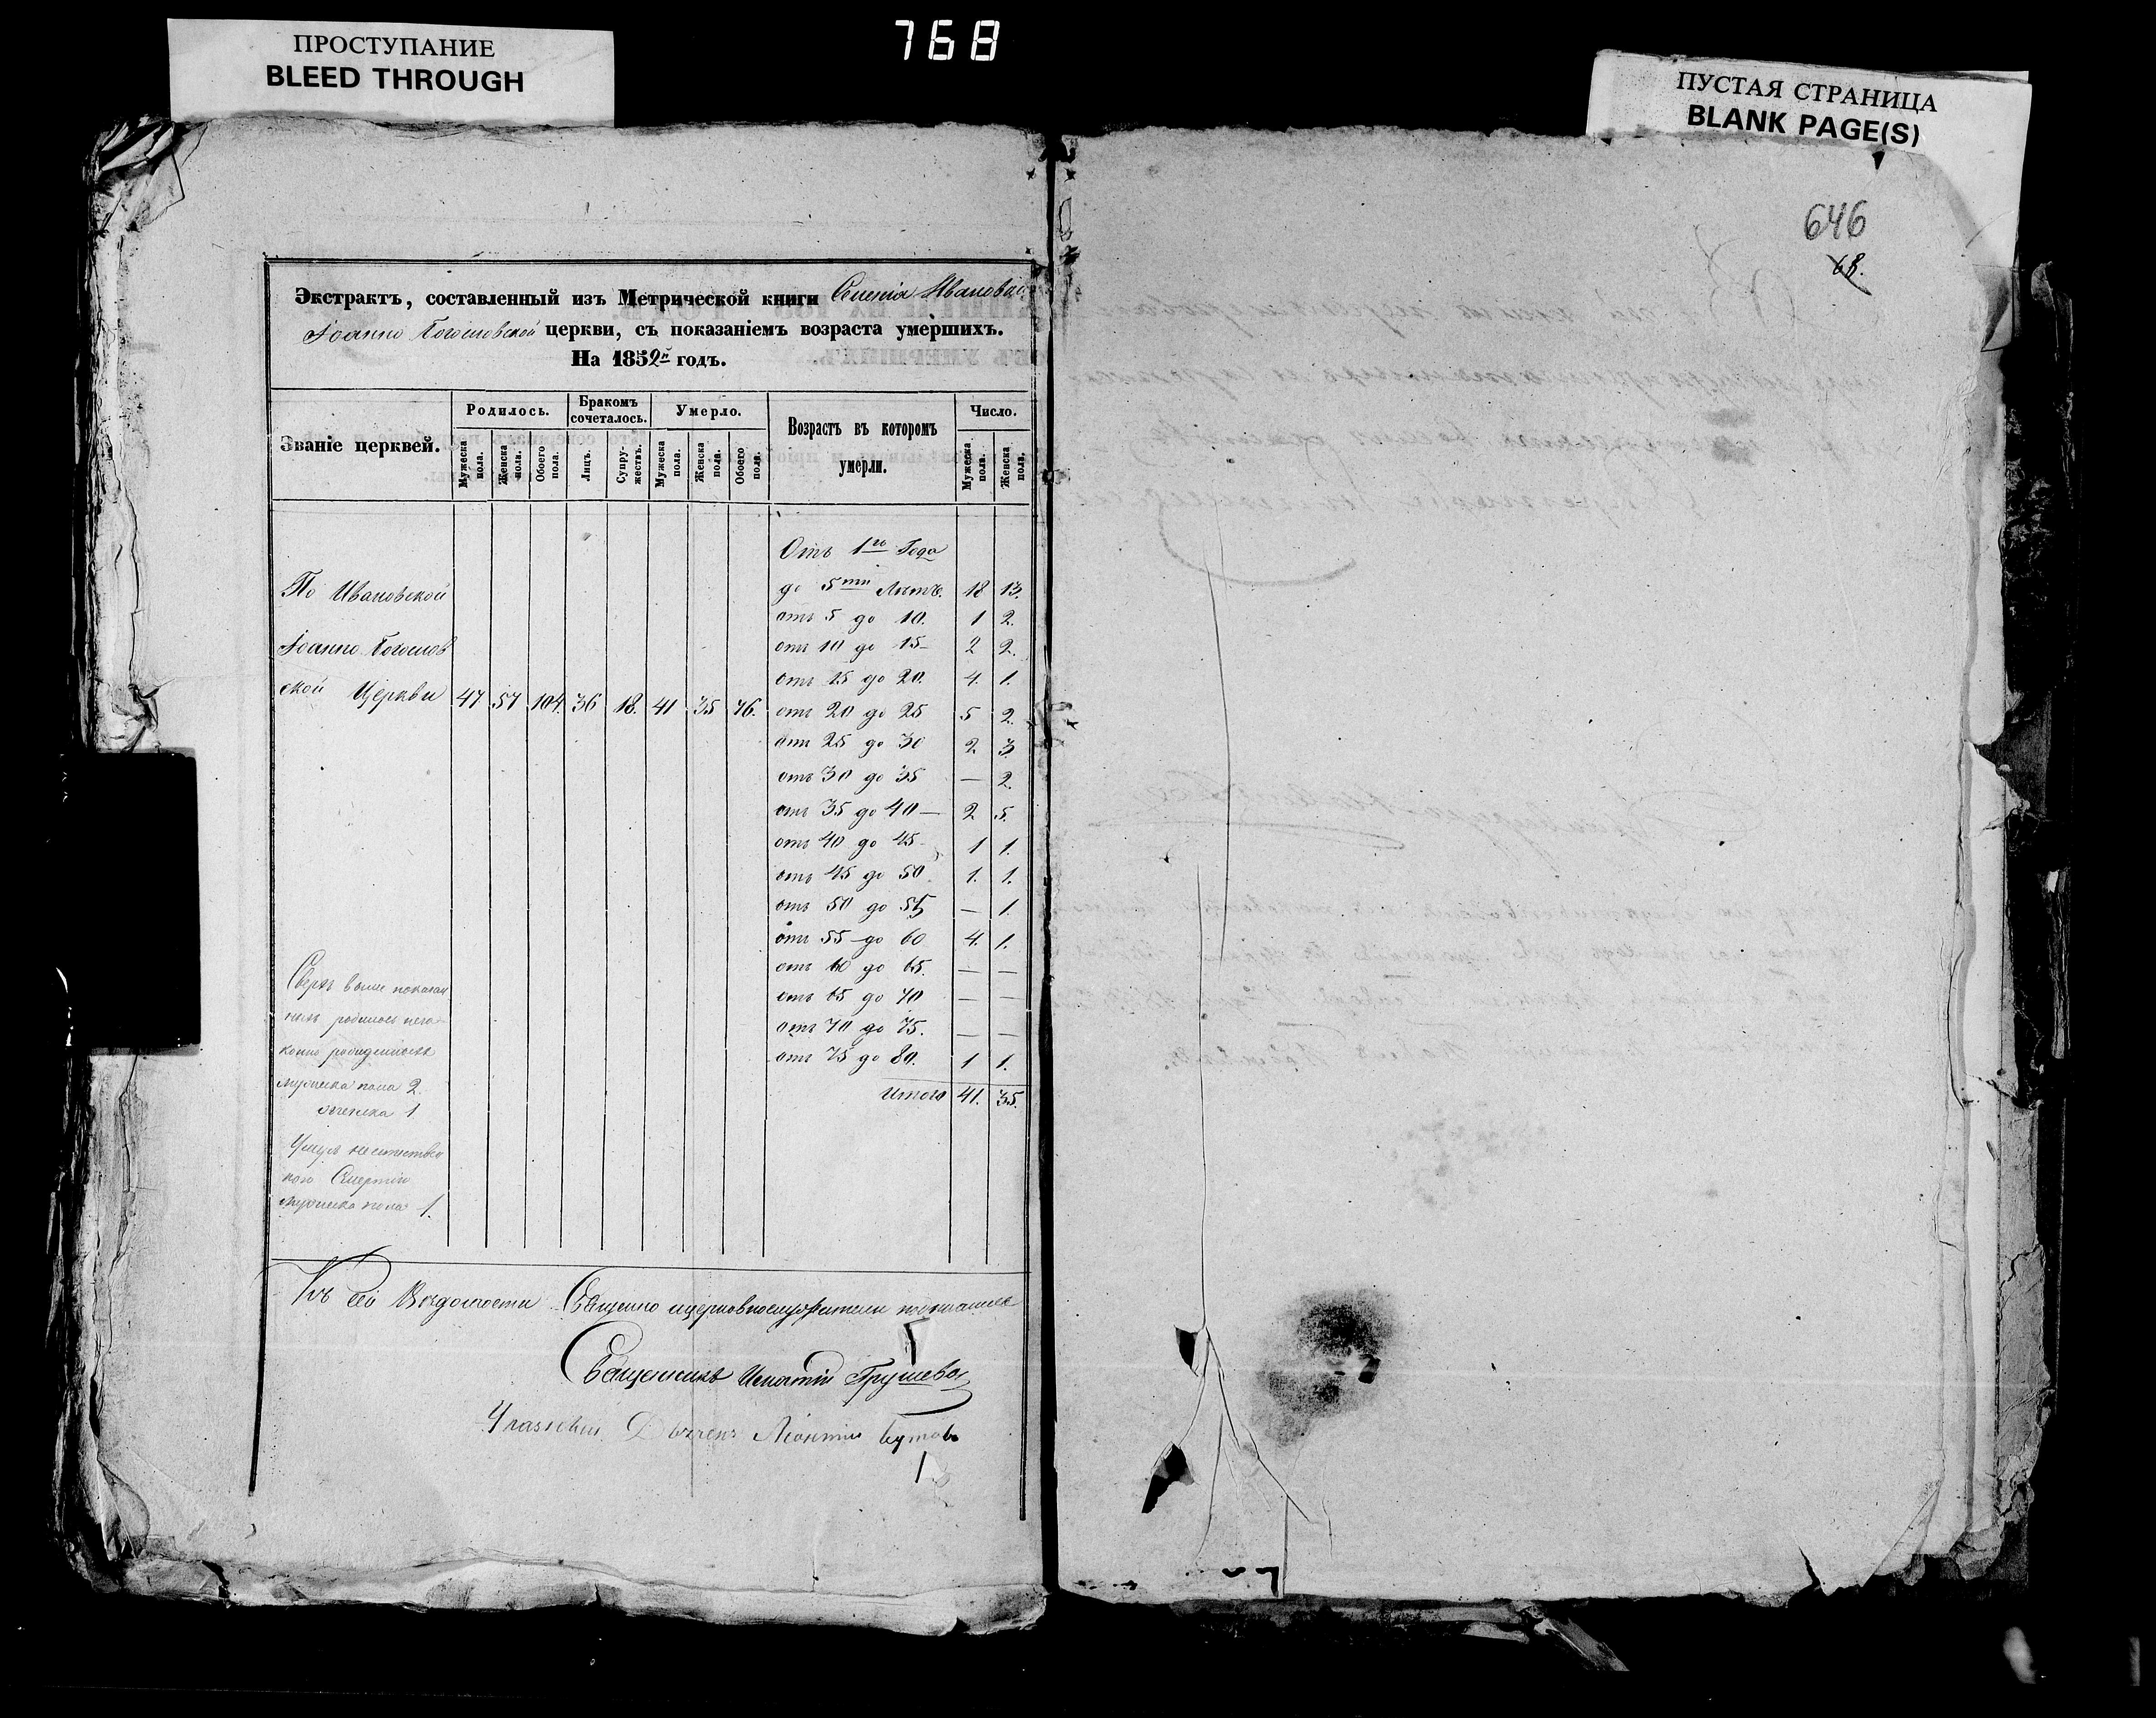 768
ПРОСТУПАНИЕ
BLEED THROUGH
ПУСТАЯ СТРАНИЦА
BLANK PAGE(S)
646
68.
Экстрактъ, составленный изъ Метрической книги Селенія Ивановки
Іоанно Богословской церкви, съ показаніемъ возраста умершихъ.
На 1852й годъ.
Званіе церквей.
Родилось.
Бракомъ сочеталось.
Умерло.
Возрастъ въ которомъ умерли.
Число.
Мужеска пола.
Женска пола.
Обоего пола.
Лицъ.
Супружествъ.
Мужеска пола.
Женска пола.
Обоего пола.
Мужеска пола.
Женска пола.
Отъ 1го Года
По Ивановской
до 5ти Лѣтъ. 18 13.
отъ 5 до 10. 1 2.
Іоанно Богослов
отъ 10 до 15 2 2.
отъ 15 до 20. 4. 1.
ской Церкви 47 57 104. 36 18. 41 35 76.
отъ 20 до 25 5 2.
отъ 25 до 30 2 3
отъ 30 до 35 — 2.
отъ 35 до 40 — 2 5.
отъ 40 до 45 1 1.
отъ 45 до 50 1. 1.
отъ 50 до 55 — 1.
отъ 55 до 60 4. 1.
отъ 60 до 65. — —
отъ 65 до 70 — —
отъ 70 до 75. — —
отъ 75 до 80. 1 1.
Итого 41. 35.
Сверхъ выше показан
ныхъ родилось неза
конно рожденныхъ
мужеска пола 2.
женска 1
Умеръ неестествен
ною Смертію
мужеска пола 1.
Къ сей Вѣдомости Священно и церковнослужители подписались
Священникъ Игнатій Грушевой
Дьячекъ Леонтий Бутов